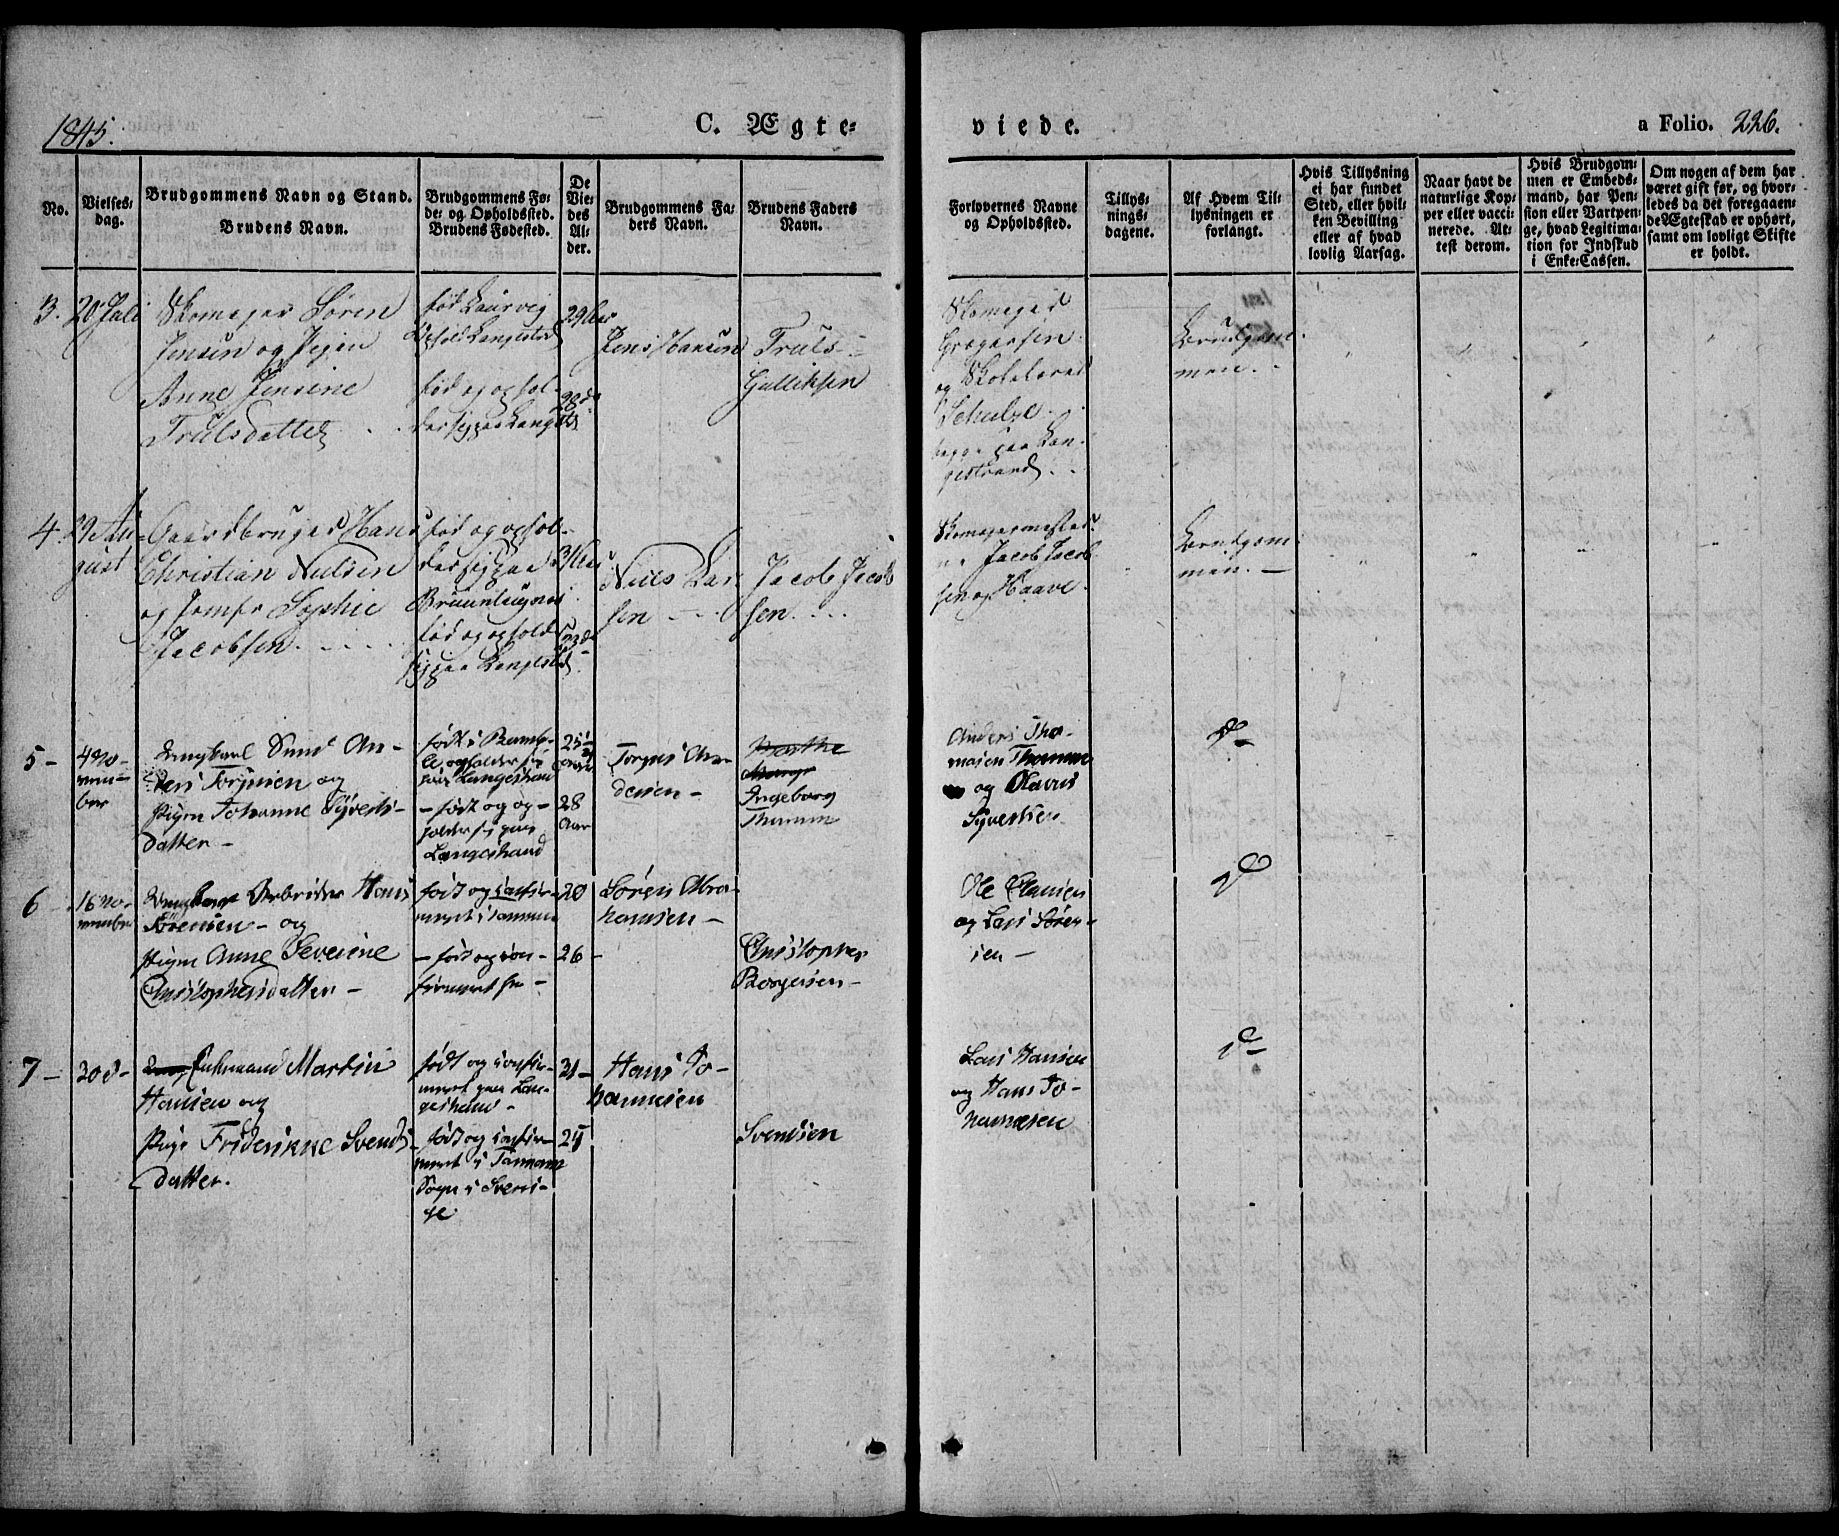 1845.
C. Ægte-
viede.
a Folio. 226.
No.
Vielses-
dag.
Brudgommens Navn og Stand.
Brudens Navn.
Brudgommens Fø-
de- og Opholdssted.
Brudens Fødested.
De
Vie-
des
Al-
der.
Brudgommens Fa-
ders Navn.
Brudens Faders
Navn.
Forlovernes Navne
og Opholdssted.
Tillys-
nings-
dagene.
Af Hvem Til-
lysningen er
forlangt.
Hvis Tillysning
ei har fundet
Sted, eller hvil-
ken Bevilling
eller af hvad
lovlig Aarsag.
Naar havt de
naturlige Kop-
per eller vacci-
nerede. At-
test derom.
Hvis Brudgom-
men er Embeds-
mand, har Pen-
sion eller Vartpen-
ge, hvad Legitima-
tion for Indskud
i Enke-Cassen.
Om nogen af dem har
været gift før, og hvor-
ledes da det foregaaen-
de Ægteskab er ophørt,
samt om lovligt Skifte
er holdt.
3.
20 Juli
Skomager Søren
Jensen og Pigen
Anne Jensine
Trulsdatter
fød Laurvig
Ophold Langestrd
fød og ophol-
der sig paa Langestd
29 Aar
28 do
Jens Hansen
Truls
Gulliksen
Skomager
Gregersen
og Skolelærer
Schulze
begge paa Lan-
gestrand
Brudgom-
men.
4.
29 Au-
gust
Gaardbruger Hans
Christian Nielsen
og Jomfr Sophie
Jacobsen
fød og ophol-
der sig paa
Brunlaugnes
fød og ophold
sig paa Langestrd
31 Aar
23 do
Niels Lar-
sen
Jacob Jacob
sen
Skomagermester
Jacob Jacob
sen og Haave.
Brudgom-
men.
5-
4 No-
vem-
ber
Ungkarl Smed An-
ders Torgusen og
Pigen Johanne Syverts-
datter-
født i Bamb-
le opholder sig
paa Langestrand
- født og op-
holder sig paa
Langestrand
25½
28
Aar
Torgus An-
dersen-
Ingeborg
Thommen
Anders Tho-
masen Thommen
og Olavus
Syvertsen
do-
6-
16 No-
vember
Arbeider Hans
Sörensen- og
Pigen Anne Severine
Christophersdatter-
født og confir-
meret i Tanum
- født og con-
firmeret do-
20
26-
Sören Abra-
hamsen-
Christopher
Borgersen-
Ole Clausen
og Lars Sören-
sen-
do
7-
30 d-
Enkemand Martin
Hansen og
Pige Friderikke Svends-
datter.
født og confir-
meret paa Lan-
gestrand-
født og confir-
meret i Tanum
Sogn
31-
25
Hans Jo-
hannesen
Svendsen
Lars Hansen
og Hans Jo-
hannesen
do-